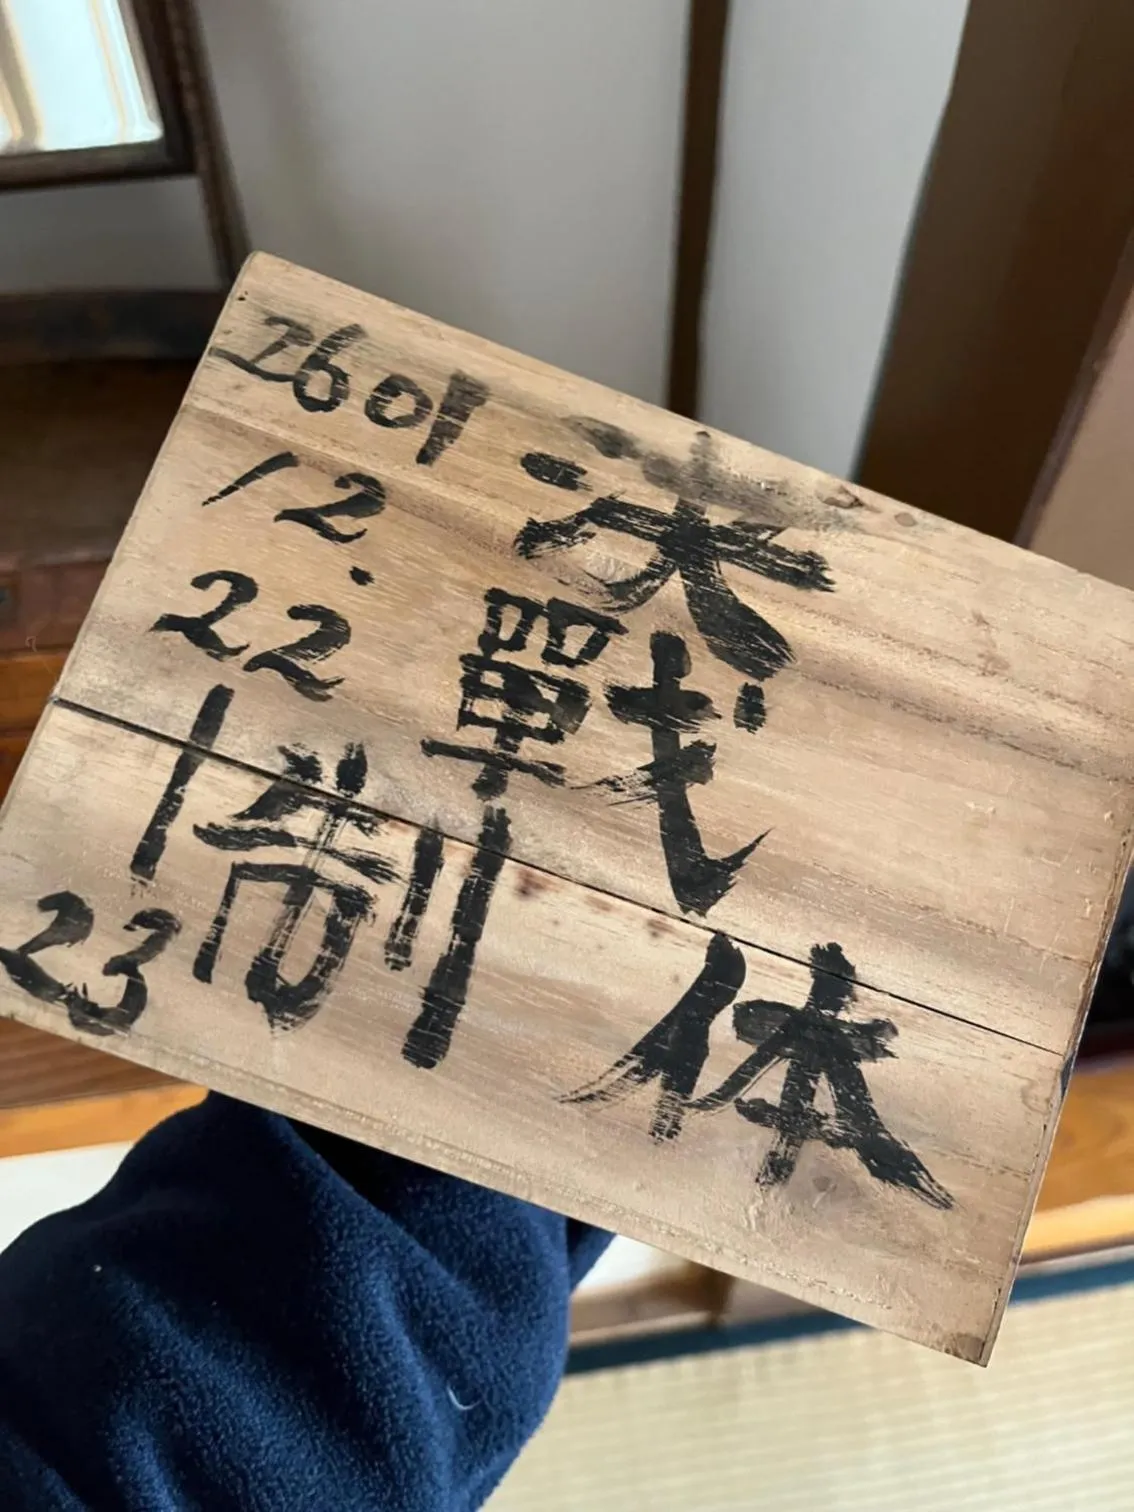 決戰体
制
2601
12.
22
|
23